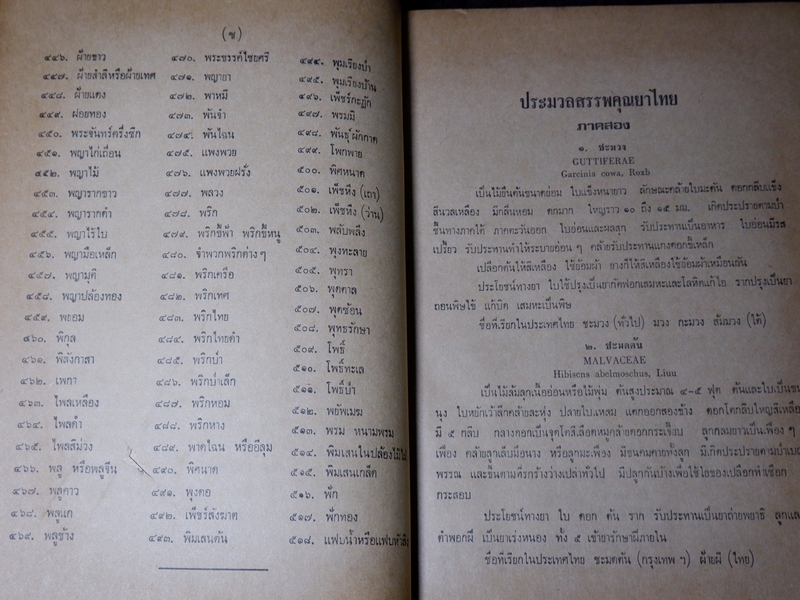 (ช)
๔๔๖. ฝ้ายขาว
๔๔๗. ฝ้ายสำลีหรือฝ้ายเทศ
๔๔๘. ฝ้ายแดง
๔๔๙. ฝอยทอง
๔๕๐. พระจันทร์ครึ่งซีก
๔๕๑. พญาไก่เถื่อน
๔๕๒. พญาไม้
๔๕๓. พญารากขาว
๔๕๔. พญารากดำ
๔๕๕. พญาไร้ใบ
๔๕๖. พญามือเหล็ก
๔๕๗. พญามุติ
๔๕๘. พญาปล้องทอง
๔๕๙. พยอม
๔๖๐. พิกุล
๔๖๑. พิลังกาสา
๔๖๒. เพกา
๔๖๓. ไพลเหลือง
๔๖๔. ไพลดำ
๔๖๕. ไพลสีม่วง
๔๖๖. พลู หรือพลูจีน
๔๖๗. พลูคาว
๔๖๘. พลูแก
๔๖๙. พลูช้าง
๔๗๐. พระขรรค์ไชยศรี
๔๗๑. พญายา
๔๗๒. พาหมี
๔๗๓. พันงำ
๔๗๔. พันไฉน
๔๗๕. แพงพวย
๔๗๖. แพงพวยฝรั่ง
๔๗๗. พลวง
๔๗๘. พริก
๔๗๙. พริกชี้ฟ้า พริกขี้หนู
๔๘๐. จำพวกพริกต่าง ๆ
๔๘๑. พริกเครือ
๔๘๒. พริกเทศ
๔๘๓. พริกไทย
๔๘๔. พริกไทยดำ
๔๘๕. พริกป่า
๔๘๖. พริกป่าเล็ก
๔๘๗. พริกหอม
๔๘๘. พริกหาง
๔๘๙. พาดไฉน หรืออีลุม
๔๙๐. พิศนาด
๔๙๑. พุงดอ
๔๙๒. เพ็ชร์สังฆาต
๔๙๓. พิมเสนต้น
๔๙๔. พุมเรียงป่า
๔๙๕. พุมเรียงบ้าน
๔๙๖. เพ็ชร์กะฎัก
๔๙๗. พรมมิ
๔๙๘. พันธุ์ผักกาด
๔๙๙. โพกพาย
๕๐๐. พิศหนาด
๕๐๑. เพ็ชหึง (เถา)
๕๐๒. เพ็ชหึง (ว่าน)
๕๐๓. พลับพลึง
๕๐๔. พุงทะลาย
๕๐๕. พุทรา
๕๐๖. พุดตาล
๕๐๗. พุดซ้อน
๕๐๘. พุทธรักษา
๕๐๙. โพธิ์
๕๑๐. โพธิ์ทะเล
๕๑๑. โพธิ์ป่า
๕๑๒. พยัพเมฆ
๕๑๓. พรม หนามพรม
๕๑๔. พิมเสนในปล้องไม้ไผ่
๕๑๕. พิมเสนเกล็ด
๕๑๖. ฟัก
๕๑๗. ฟักทอง
๕๑๘. แฟบน้ำหรือแฟบห้าสิง
ประมวลสรรพคุณยาไทย
ภาคสอง
๑. ชะมวง
GUTTIFERAE
Garcinia cowa, Roxb
เป็นไม้ยืนต้นขนาดย่อม ใบแข็งหนายาว ลักษณะคล้ายใบมะดัน ดอกกลีบแข็ง
สีนวลเหลือง มีกลิ่นหอม ดกมาก ใหญ่ราว ๑๐ ถึง ๑๕ มม. เกิดประปรายตามป่า
ชื้นทางภาคใต้ ภาคตะวันออก ใบอ่อนและผลสุก รับประทานเป็นอาหาร ใบอ่อนมีรส
เปรี้ยว รับประทานทำให้ระบายอ่อน ๆ คล้ายรับประทานแกงดอกขี้เหล็ก
เปลือกต้นให้สีเหลือง ใช้ย้อมผ้า ยางก็ให้สีเหลืองใช้ย้อมผ้าเหมือนกัน
ประโยชน์ทางยา ใบใช้ปรุงเป็นยากัดฟอกเสมหะและโลหิตแก้ไอ รากปรุงเป็นยา
ถอนพิษไข้ แก้บิด เสมหะเป็นพิษ
ชื่อที่เรียกในประเทศไทย ชะมวง (ทั่วไป) มวง กะมวง ส้มมวง (ใต้)
๒. ชะมดต้น
MALVACEAE
Hibiscus abelmoschus, Linu
เป็นไม้ล้มลุกเนื้ออ่อนหรือไม้พุ่ม ต้นสูงประมาณ ๔-๕ ฟุต ต้นและใบเป็นขน
นุง ใบหยักเว้าลึกคล้ายละหุ่ง ปลายใบแหลม แตกออกสองข้าง ดอกโตกลีบใหญ่สีเหลือง
มี ๕ กลีบ กลางดอกเป็นจุดโตสีเลือดหมูคล้ายดอกกระเจี๊ยบ ลูกกลมยาวเป็นเฟือง ๆ
เฟือง คล้ายลูกเล็บมือนาง หรือลูกมะเฟือง มีขนคมคายทั้งลูก มีเกิดประปรายตามป่าเบญ
พรรณ และขึ้นตามที่รกร้างว่างเปล่าทั่วไป มีปลูกกันบ้างเพื่อใช้ใยของเปลือกทำเชือก
กระสอบ
ประโยชน์ทางยา ใบ ดอก ต้น ราก รับประทานเป็นยาถ่ายพยาธิ ลูกแล
ดำพอกฝี เป็นยาเร่งหนอง ทั้ง ๕ เข้ายารักษาฝีภายใน
ชื่อที่เรียกในประเทศไทย ชะมดต้น (กรุงเทพ ฯ) ฝ้ายผี (ไทย)